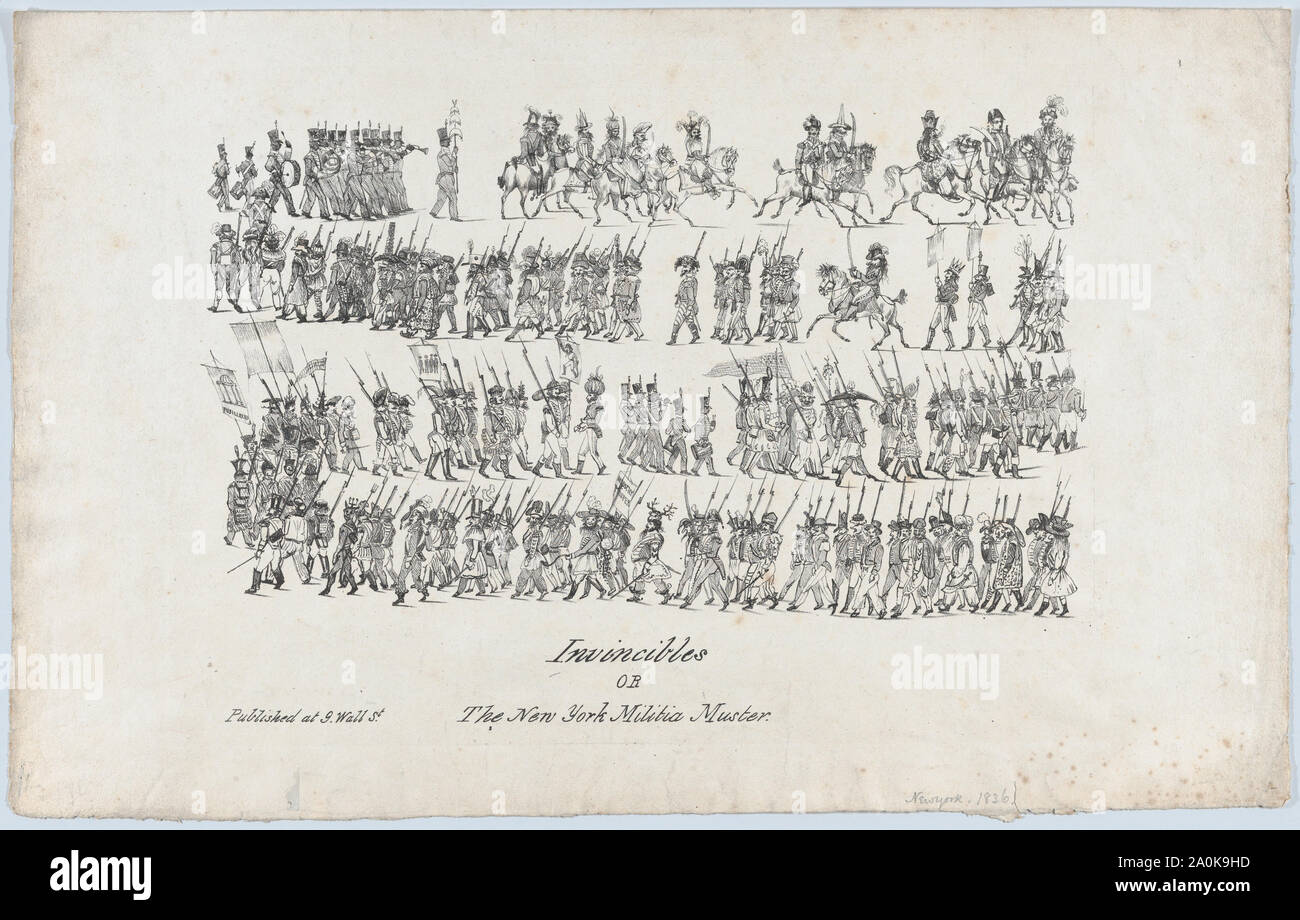 Invincibles
OR
Published at 9. Wall St
The New York Militia Muster.
New York. 1836
alamy
alamy
Image ID: 2A0K9HD
www.alamy.com